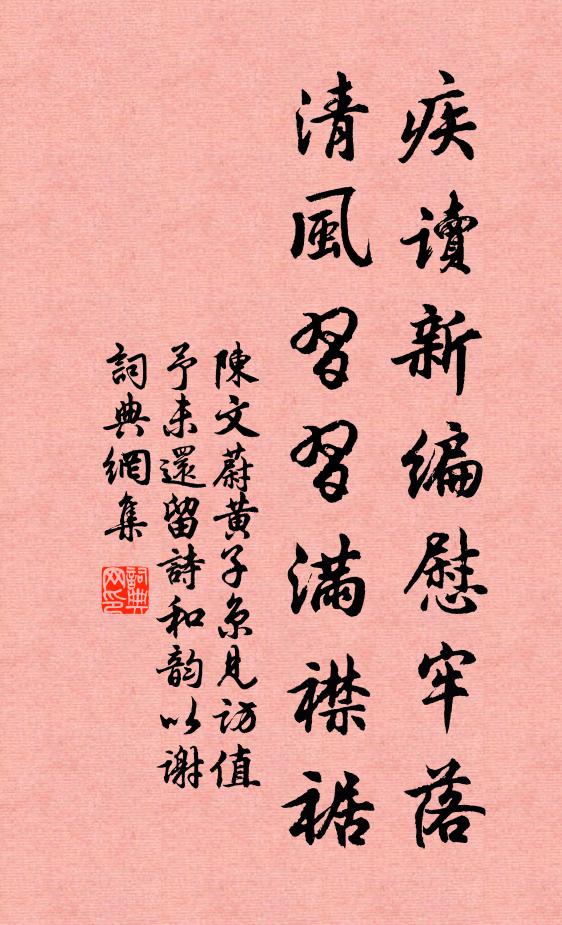 疾讀新編慰牢落
清風習習滿襟裾
陳文蔚黃子京見訪值
予未還留詩和韵以謝
詞典網集
詞典网印